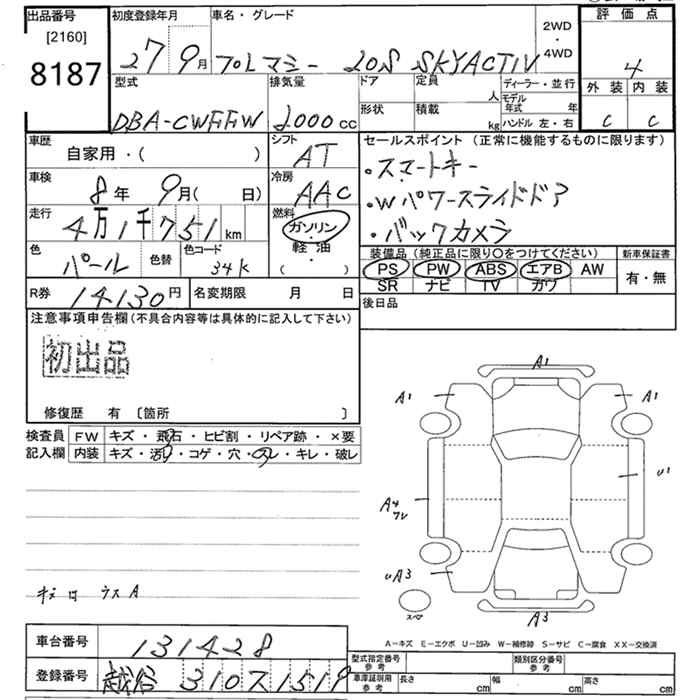 出品番号 初度登録年月 車名・グレード 2WD・4WD 評価点
[2160]
8187
27 9月 プレマシー 20S SKYACTIV 4
型式 排気量 ドア 定員 人 ディーラー・並行 外装 内装
DBA-CWFFW 2000cc 形状 積載 kg モデル年式 年 ハンドル 左・右 C C
車歴 シフト セールスポイント(正常に機能するものに限ります)
自家用・( ) AT ・スマートキー
車検 冷房
8年 9月( 日) AAC ・Wパワースライドドア
走行 燃料
4万1千751km ガソリン・軽油・( ) ・バックカメラ
色 色替 色コード 装備品(純正品に限り○をつけてください) 新車保証書
パール 34K PS PW ABS エアB AW 有・無
SR ナビ TV カワ
R券 14130円 名変期限 月 日 後日品
注意事項申告欄(不具合内容等は具体的に記入して下さい)
初出品
修復歴 有 [箇所 ]
検査員 FW キズ・飛石・ヒビ割・リペア跡・×要
記入欄 内装 キズ・汚れ・コゲ・穴・スレ・キレ・破レ
A1
A1 A1
U1
A4
UA3
A3
スペア
A-キズ E-エクボ U-凹み W-補修跡 S-サビ C-腐食 XX-交換済
車台番号 131428
登録番号 越谷 310 ス 1519
型式指定番号参考 類別区分番号参考
車庫証明用参考 長さ cm 幅 cm 高さ cm